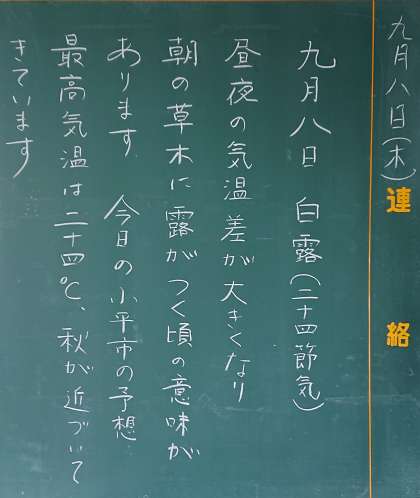 九月八日(木)
連絡
九月八日 白露(二十四節気)
昼夜の気温差が大きくなり
朝の草木に露がつく頃の意味が
あります 今日の小平市の予想
最高気温は二十四℃、秋が近づいて
きています